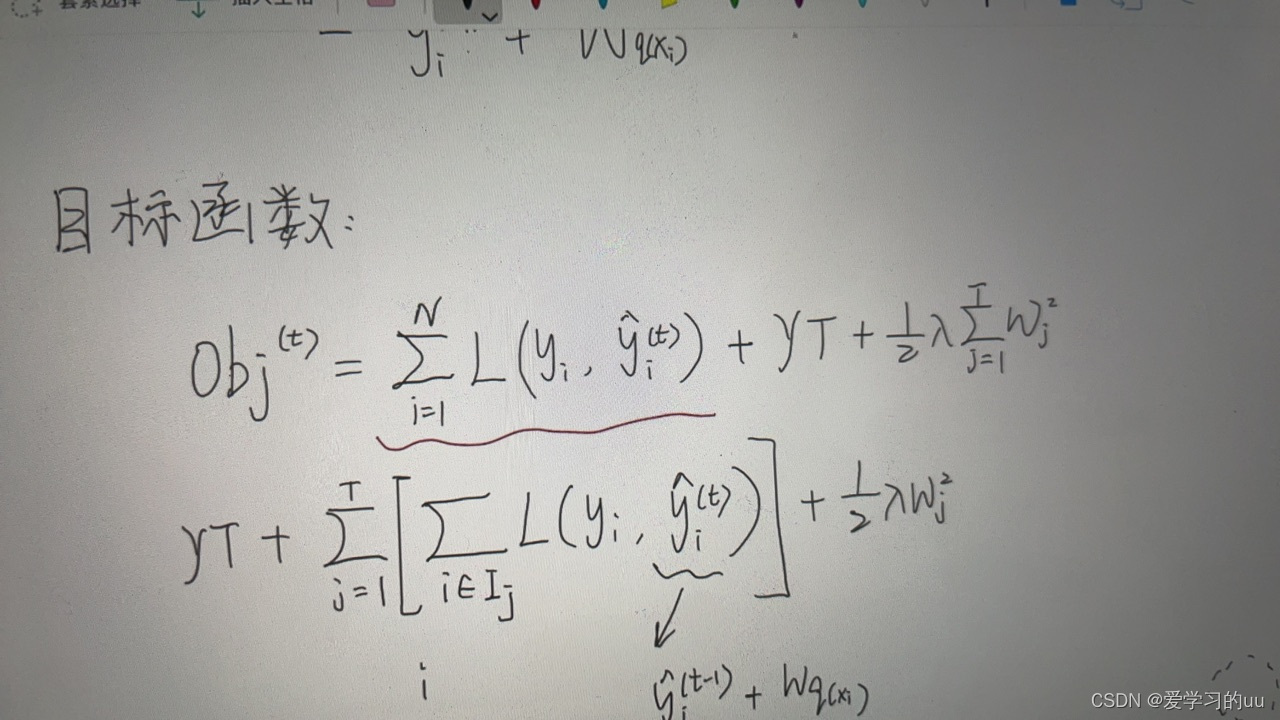 套索选择 插入空格
− y_i + W_{q(x_i)}
目标函数:
Obj^{(t)} = \sum_{i=1}^{N} L(y_i, \hat{y}_i^{(t)}) + γT + \frac{1}{2} λ \sum_{j=1}^{T} W_j^2
γT + \sum_{j=1}^{T} [ \sum_{i∈I_j} L(y_i, \hat{y}_i^{(t)}) ] + \frac{1}{2} λ W_j^2
i \hat{y}_i^{(t-1)} + W_{q(x_i)}
CSDN @爱学习的uu